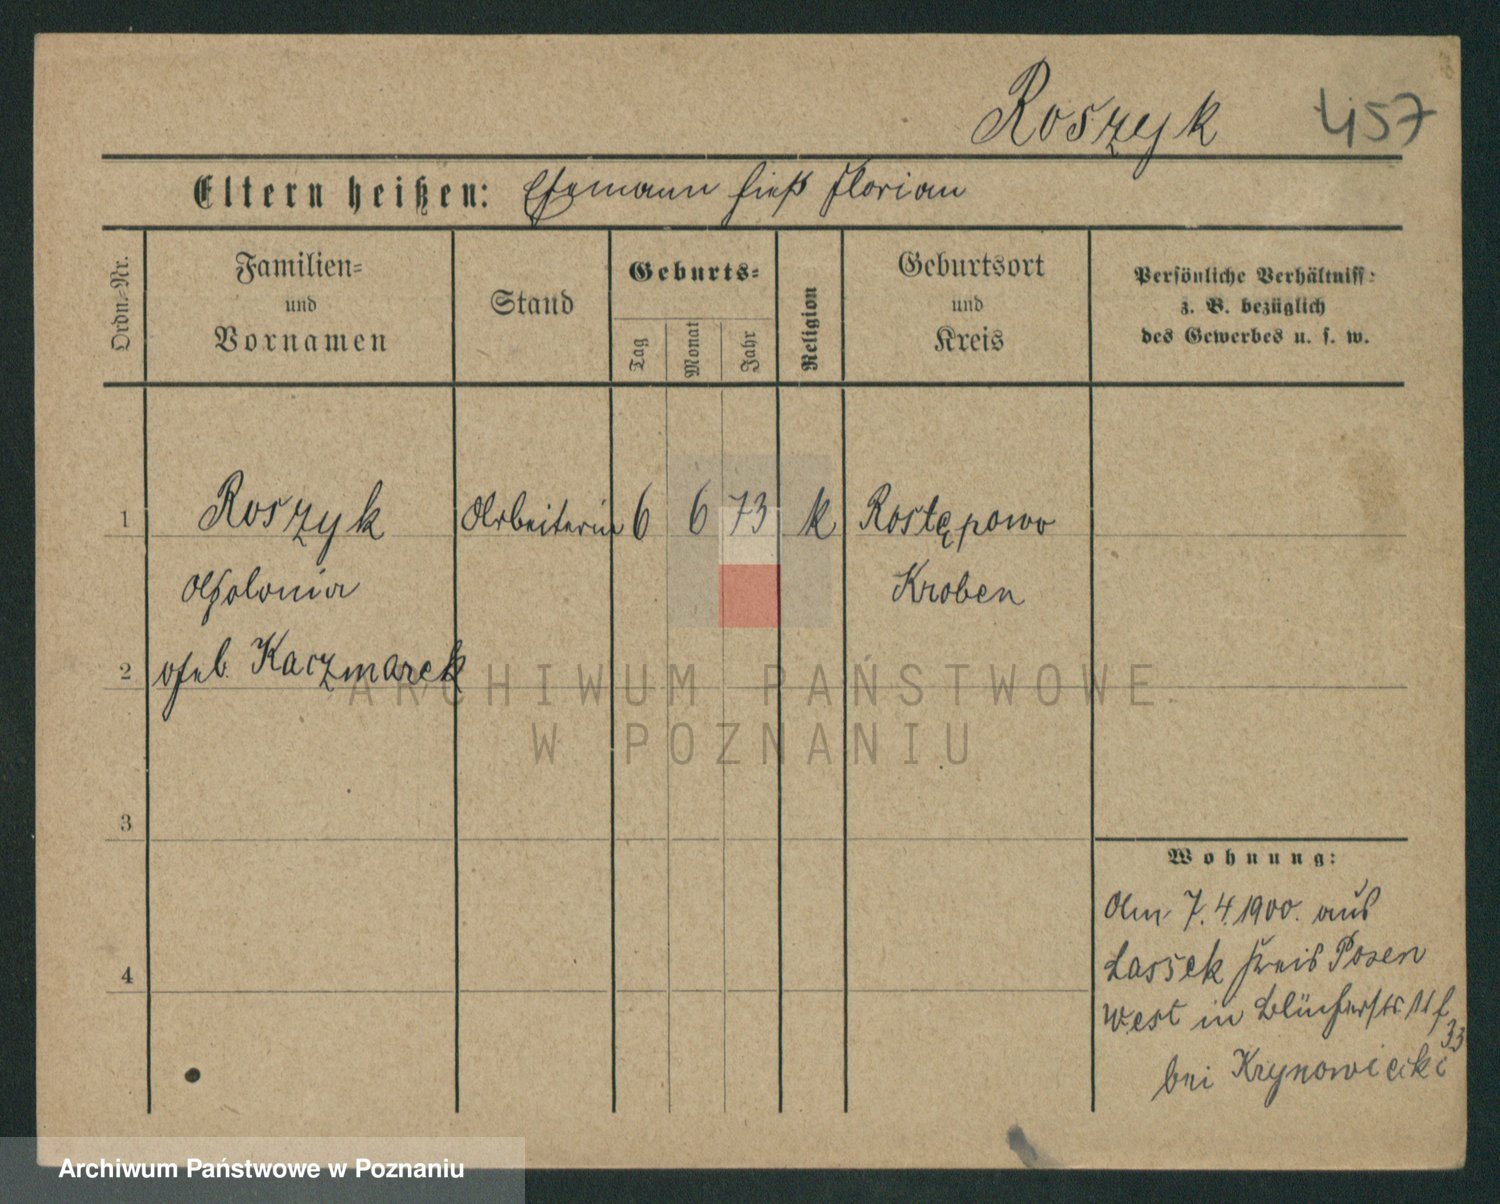 Roszyk 457
Eltern heißen: Ehemann hieß Florian
Ordn.-Nr.
Familien-
und
Vornamen
Stand
Geburts-
Tag
Monat
Jahr
Religion
Geburtsort
und
Kreis
Persönliche Verhältniss:
z. B. bezüglich
des Gewerbes u. s. w.
1 Roszyk Arbeiterin 6 6 73 k Rostępowo
Apolonia Kroben
2 geb. Kaczmarek
ARCHIWUM PAŃSTWOWE
W POZNANIU
3
Wohnung:
Am 7.4.1900. aus
4 Lassek Kreis Posen
West in Blücherstr.
33
bei Krynowiecki
Archiwum Państwowe w Poznaniu